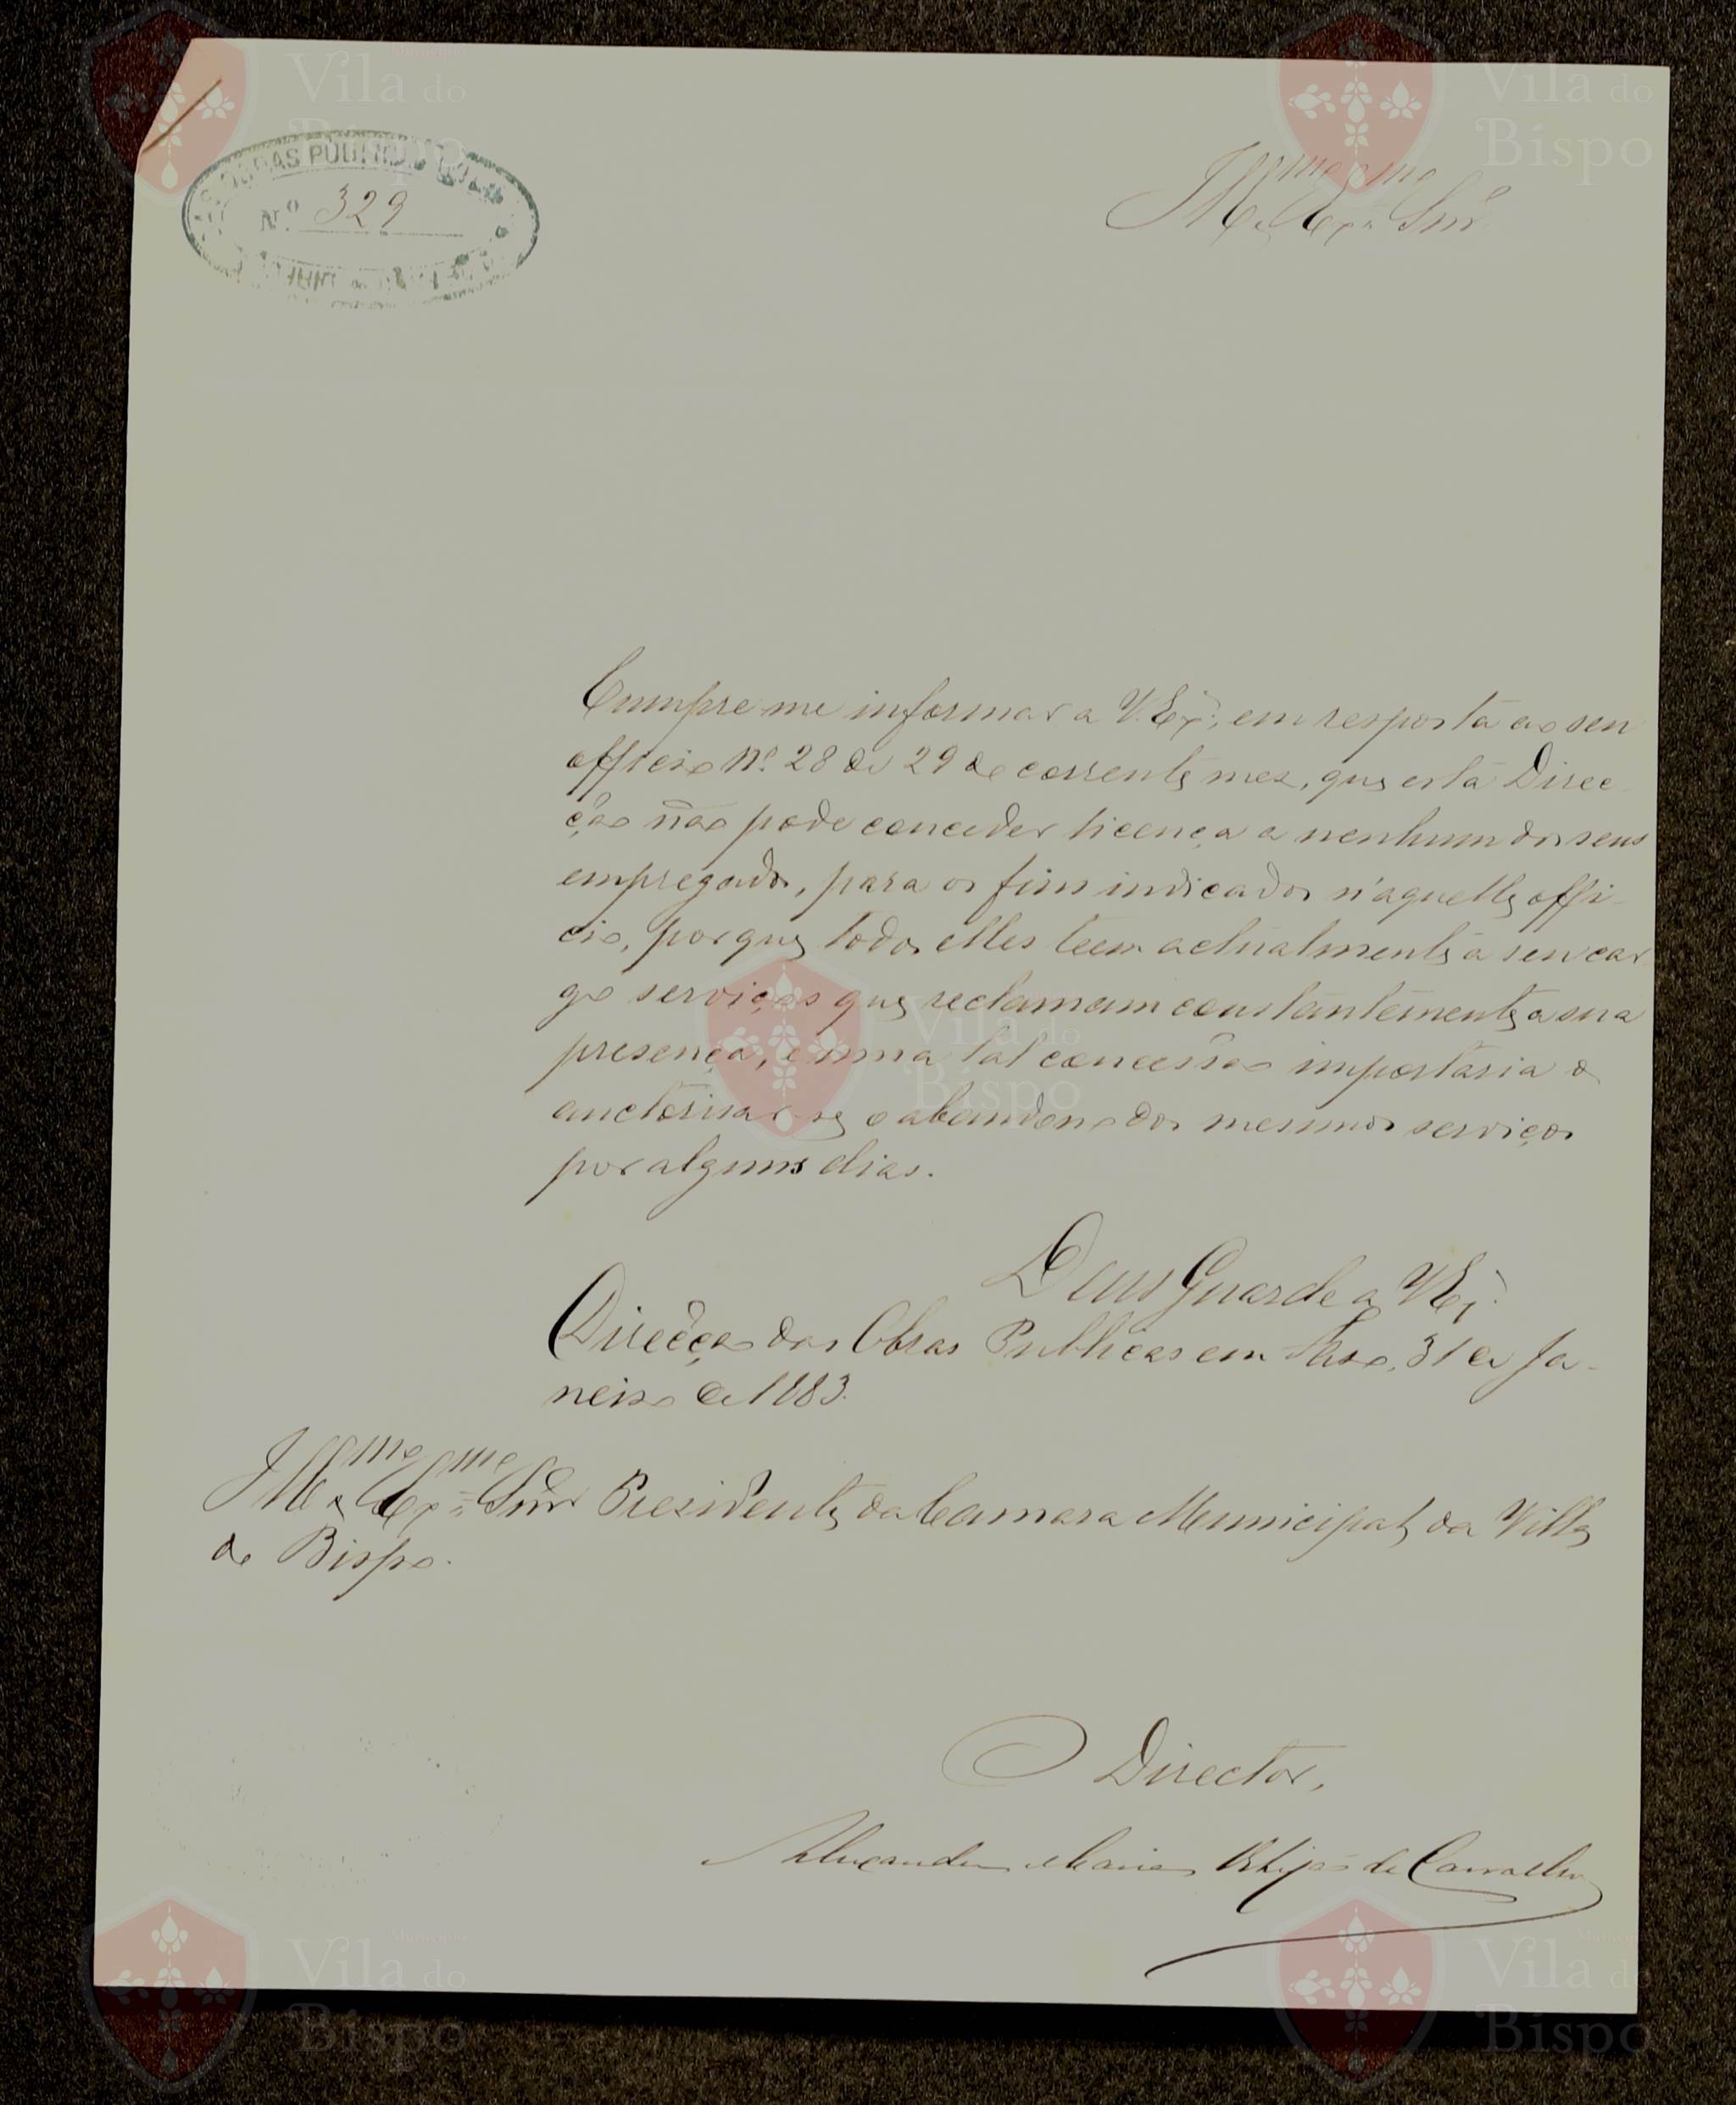 Vila do Bispo
Vila do Bispo
OBRAS PUBLICAS
Nº 329
Illmo e Exmo Snr
Cumpre-me informar a V. Exª, em resposta ao seu
officio Nº 28 de 29 do corrente mez, que esta Direc-
ção não pode conceder licença a nenhum dos seus
empregados, para os fins indicados n'aquelle offi-
cio, porque todos elles teem actualmente a seu car-
go serviços que reclamam constantemente a sua
presença, e uma tal concessão importaria o
auctorisar-se o abandono dos mesmos serviços
por alguns dias.
Vila do Bispo
Deus Guarde a V. Exª
Direcção das Obras Publicas em Faro, 31 de Ja-
neiro de 1883.
Illmo e Exmo Snr Presidente da Camara Municipal da Villa
do Bispo.
O Director,
Alexandre Maria Ortigão de Carvalho
Município Vila do Bispo
Município Vila do Bispo